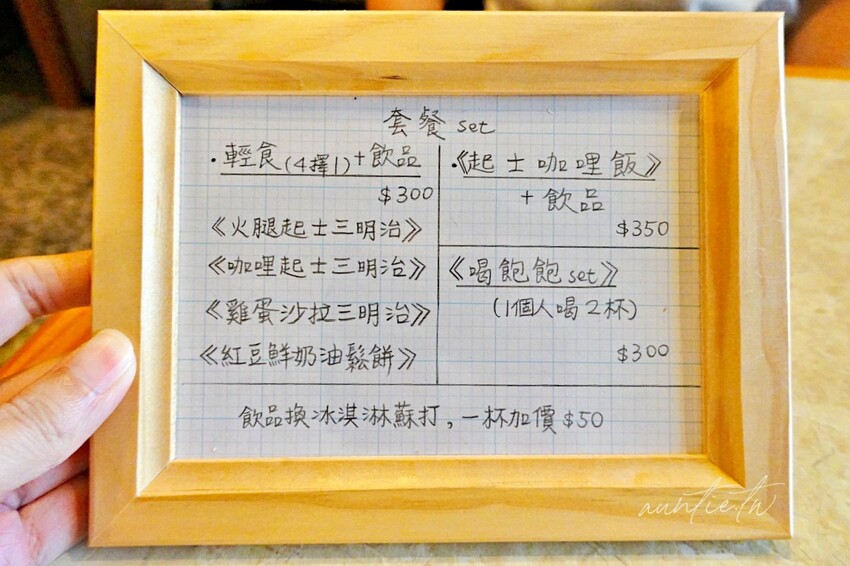 套餐 set
·輕食(4擇1)+飲品
$300
《火腿起士三明治》
《咖哩起士三明治》
《雞蛋沙拉三明治》
《紅豆鮮奶油鬆餅》
·《起士咖哩飯》
+飲品
$350
《喝飽飽set》
(1個人喝2杯)
$300
飲品換冰淇淋蘇打，一杯加價$50
auntie.tw